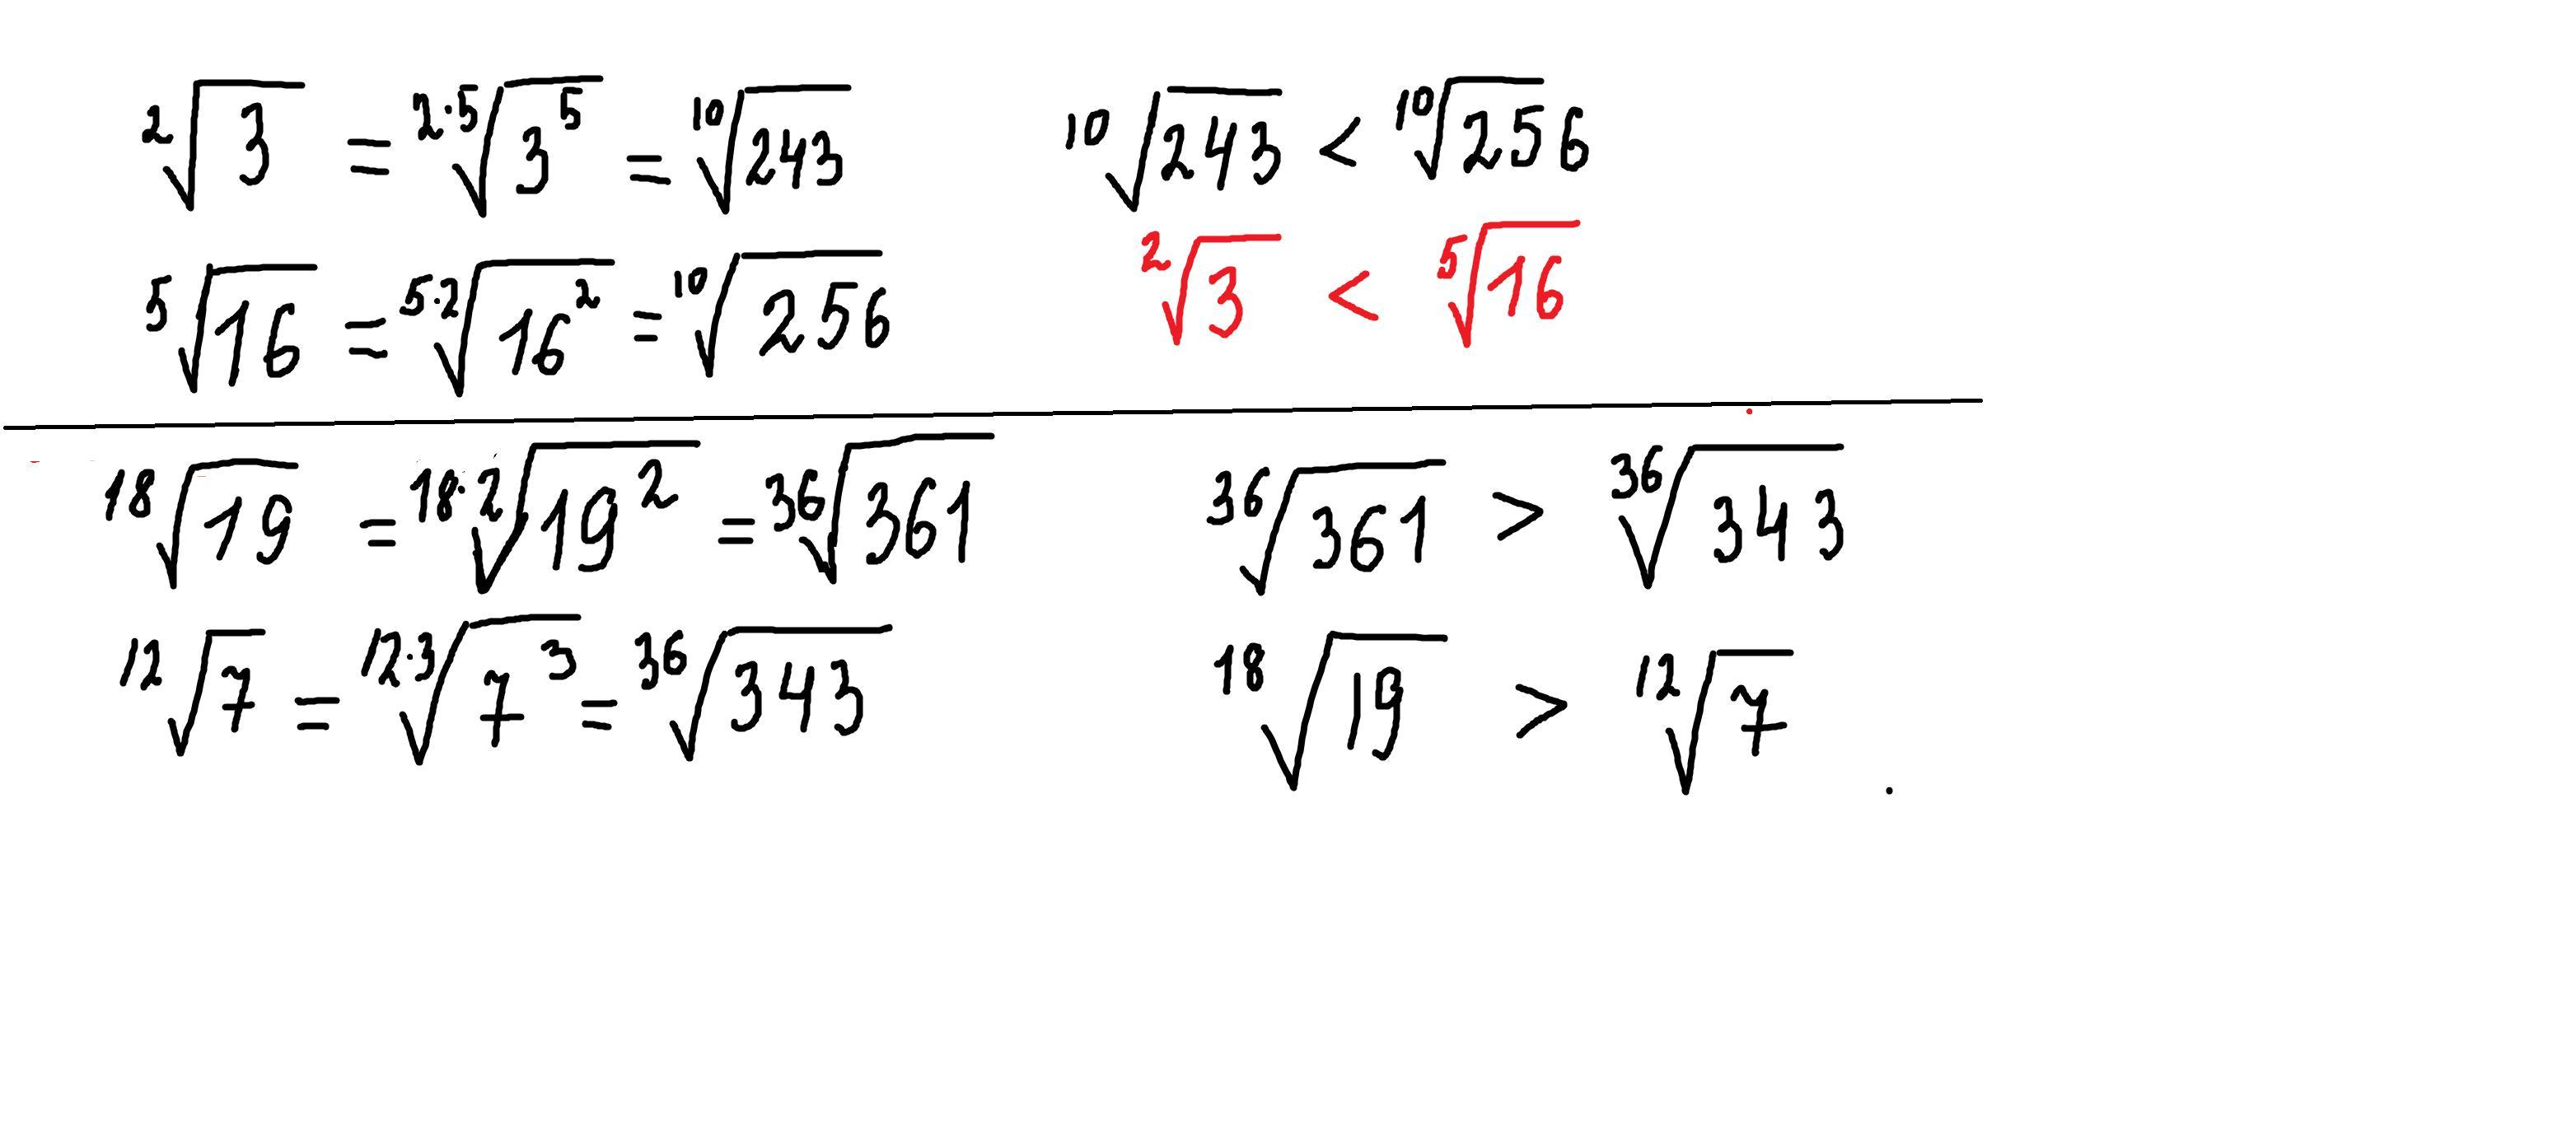 ²√3 = ²·⁵√3⁵ = ¹⁰√243    ¹⁰√243 < ¹⁰√256
²√3 < ⁵√16
⁵√16 = ⁵·²√16² = ¹⁰√256
¹⁸√19 = ¹⁸·²√19² = ³⁶√361    ³⁶√361 > ³⁶√343
¹²√7 = ¹²·³√7³ = ³⁶√343    ¹⁸√19 > ¹²√7 .